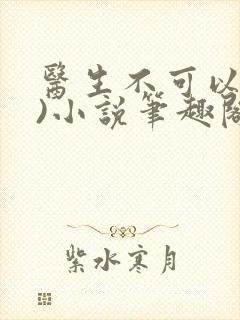 醫生不可以
)小說筆趣閣
紫水寒月